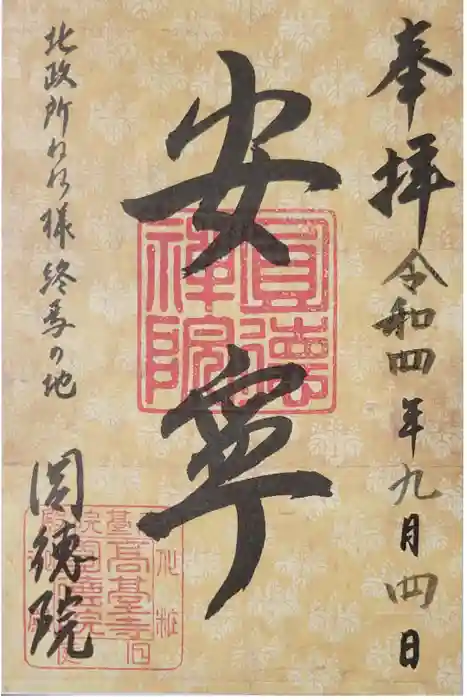 奉拝 令和四年九月四日
安寧
圓德禅院
北政所ねね様終焉の地
圓徳院